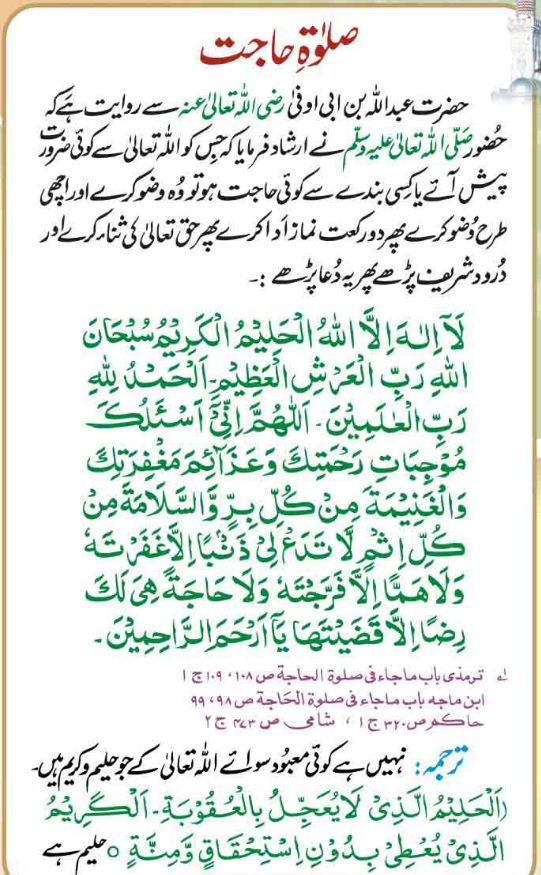 صلوٰۃِ حاجت
حضرت عبداللہ بن ابی اوفیٰ رضی اللہ تعالیٰ عنہ سے روایت ہے کہ
حُضور صَلَّی اللہ تعالیٰ علیہ وسلّم نے ارشاد فرمایا کہ جس کو اللہ تعالیٰ سے کوئی ضرورت
پیش آئے یا کسی بندے سے کوئی حاجت ہو تو وُہ وضو کرے اور اچھی
طرح وُضو کرے پھر دو رکعت نماز اَدا کرے پھر حق تعالیٰ کی ثناء کرے اور
دُرود شریف پڑھے پھر یہ دُعا پڑھے :۔
لَآ اِلٰہَ اِلَّا اللہُ الْحَلِیْمُ الْکَرِیْمُ سُبْحَانَ
اللہِ رَبِّ الْعَرْشِ الْعَظِیْمِ۔ اَلْحَمْدُ لِلّٰہِ
رَبِّ الْعٰلَمِیْنَ۔ اَللّٰہُمَّ اِنِّیْٓ اَسْئَلُکَ
مُوْجِبَاتِ رَحْمَتِکَ وَعَزَآئِمَ مَغْفِرَتِکَ
وَالْغَنِیْمَۃَ مِنْ کُلِّ بِرٍّ وَّالسَّلَامَۃَ مِنْ
کُلِّ اِثْمٍ لَا تَدَعْ لِیْ ذَنْۢبًا اِلَّا غَفَرْتَہٗ
وَلَا ھَمًّا اِلَّا فَرَّجْتَہٗ وَلَا حَاجَۃً ھِیَ لَکَ
رِضًا اِلَّا قَضَیْتَھَا یَآ اَرْحَمَ الرَّاحِمِیْنَ۔
لہ ترمذی باب ماجاء فی صلوۃ الحاجۃ ص ۱۰۸، ۱۰۹ ج ۱
ابن ماجہ باب ماجاء فی صلوۃ الحَاجۃ ص ۹۸، ۹۹
حاکم ص ۳۲۰ ج ۱، شامی ص ۴۷۳ ج ۲
ترجمہ: نہیں ہے کوئی معبُود سوائے اللہ تعالیٰ کے جو حلیم و کریم ہیں۔
(اَلْحَلِیْمُ الَّذِیْ لَا یُعَجِّلُ بِالْعُقُوْبَۃِ۔ اَلْکَرِیْمُ
الَّذِیْ یُعْطِیْ بِدُوْنِ اِسْتِحْقَاقٍ وَّمِنَّۃٍ ○ حلیم ہے